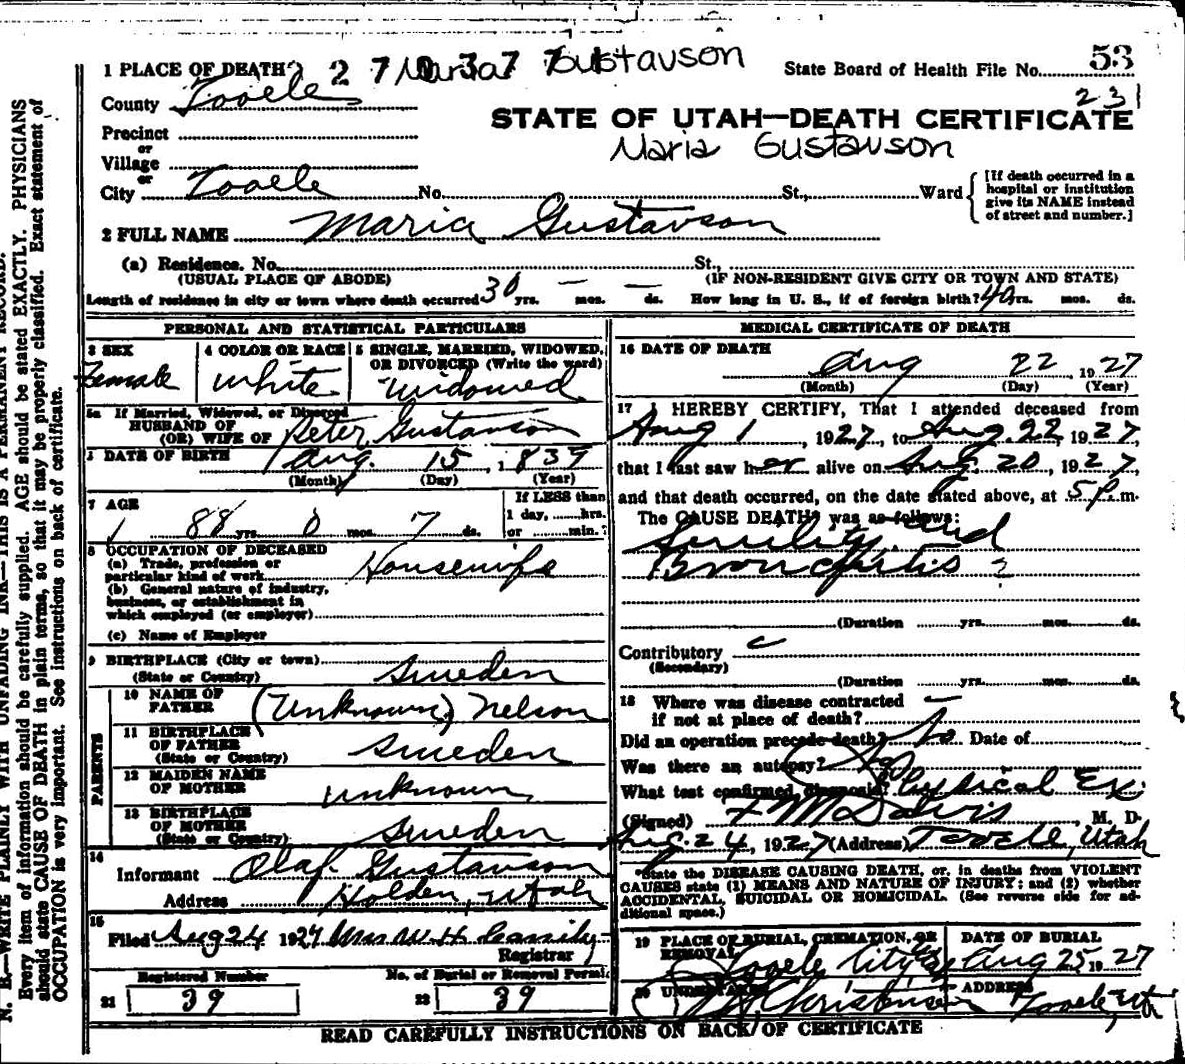 53
1 PLACE OF DEATH 2 7 0 3 7 7 Maria Gustavson State Board of Health File No.
County Tooele 231
STATE OF UTAH—DEATH CERTIFICATE
Precinct
or
Maria Gustavson
Village
or
City Tooele No. St., Ward [If death occurred in a hospital or institution give its NAME instead of street and number.]
2 FULL NAME Maria Gustavson
(a) Residence. No. St.,
(USUAL PLACE OF ABODE) (IF NON-RESIDENT GIVE CITY OR TOWN AND STATE)
Length of residence in city or town where death occurred 30 yrs. — mos. — ds. How long in U. S., if of foreign birth? 40 yrs. mos. ds.
PERSONAL AND STATISTICAL PARTICULARS
3 SEX
Female
4 COLOR OR RACE
White
5 SINGLE, MARRIED, WIDOWED,
OR DIVORCED (Write the word)
Widowed
5a If Married, Widowed, or Divorced
HUSBAND OF
(OR) WIFE OF Peter Gustavson
DATE OF BIRTH Aug. 15, 1839
(Month) (Day) (Year)
7 AGE
88 yrs. 0 mos. 7 ds.
If LESS than
1 day, hrs.
or min.
8 OCCUPATION OF DECEASED
(a) Trade, profession or
particular kind of work Housewife
(b) General nature of industry,
business, or establishment in
which employed (or employer)
(c) Name of Employer
9 BIRTHPLACE (City or town)
(State or Country) Sweden
PARENTS
10 NAME OF
FATHER (Unknown) Nelson
11 BIRTHPLACE
OF FATHER
(State or Country) Sweden
12 MAIDEN NAME
OF MOTHER unknown
13 BIRTHPLACE
OF MOTHER
(State or Country) Sweden
14
Informant Olaf Gustavson
Address Holden, Utah
15
Filed Aug 24 1927 Mrs W H Cassity
Registrar
Registered Number
21 39
No. of Burial or Removal Permit
22 39
MEDICAL CERTIFICATE OF DEATH
16 DATE OF DEATH
Aug 22, 1927
(Month) (Day) (Year)
17 I HEREBY CERTIFY, That I attended deceased from
Aug 1, 1927, to Aug 22, 1927,
that I last saw her alive on Aug. 20, 1927,
and that death occurred, on the date stated above, at 5 p.m.
The CAUSE DEATH was as follows:
Senility and
Bronchitis
(Duration yrs. mos. ds.
Contributory
(Secondary)
(Duration yrs. mos. ds.
18 Where was disease contracted
if not at place of death? —
Did an operation precede death? No Date of
Was there an autopsy? No
What test confirmed diagnosis? Physical Ex.
(Signed) F M Davis, M. D.
Aug. 24, 1927 (Address) Tooele, Utah
*State the DISEASE CAUSING DEATH, or, in deaths from VIOLENT
CAUSES state (1) MEANS AND NATURE OF INJURY; and (2) whether
ACCIDENTAL, SUICIDAL OR HOMICIDAL. (See reverse side for ad-
ditional space.)
19 PLACE OF BURIAL, CREMATION, OR
REMOVAL
Tooele City
DATE OF BURIAL
Aug 25 1927
20 UNDERTAKER
Christensen
ADDRESS
Tooele, Ut
READ CAREFULLY INSTRUCTIONS ON BACK OF CERTIFICATE
N. B.—WRITE PLAINLY WITH UNFADING INK—THIS IS A PERMANENT RECORD.
Every item of information should be carefully supplied. AGE should be stated EXACTLY. PHYSICIANS
should state CAUSE OF DEATH in plain terms, so that it may be properly classified. Exact statement of
OCCUPATION is very important. See instructions on back of certificate.